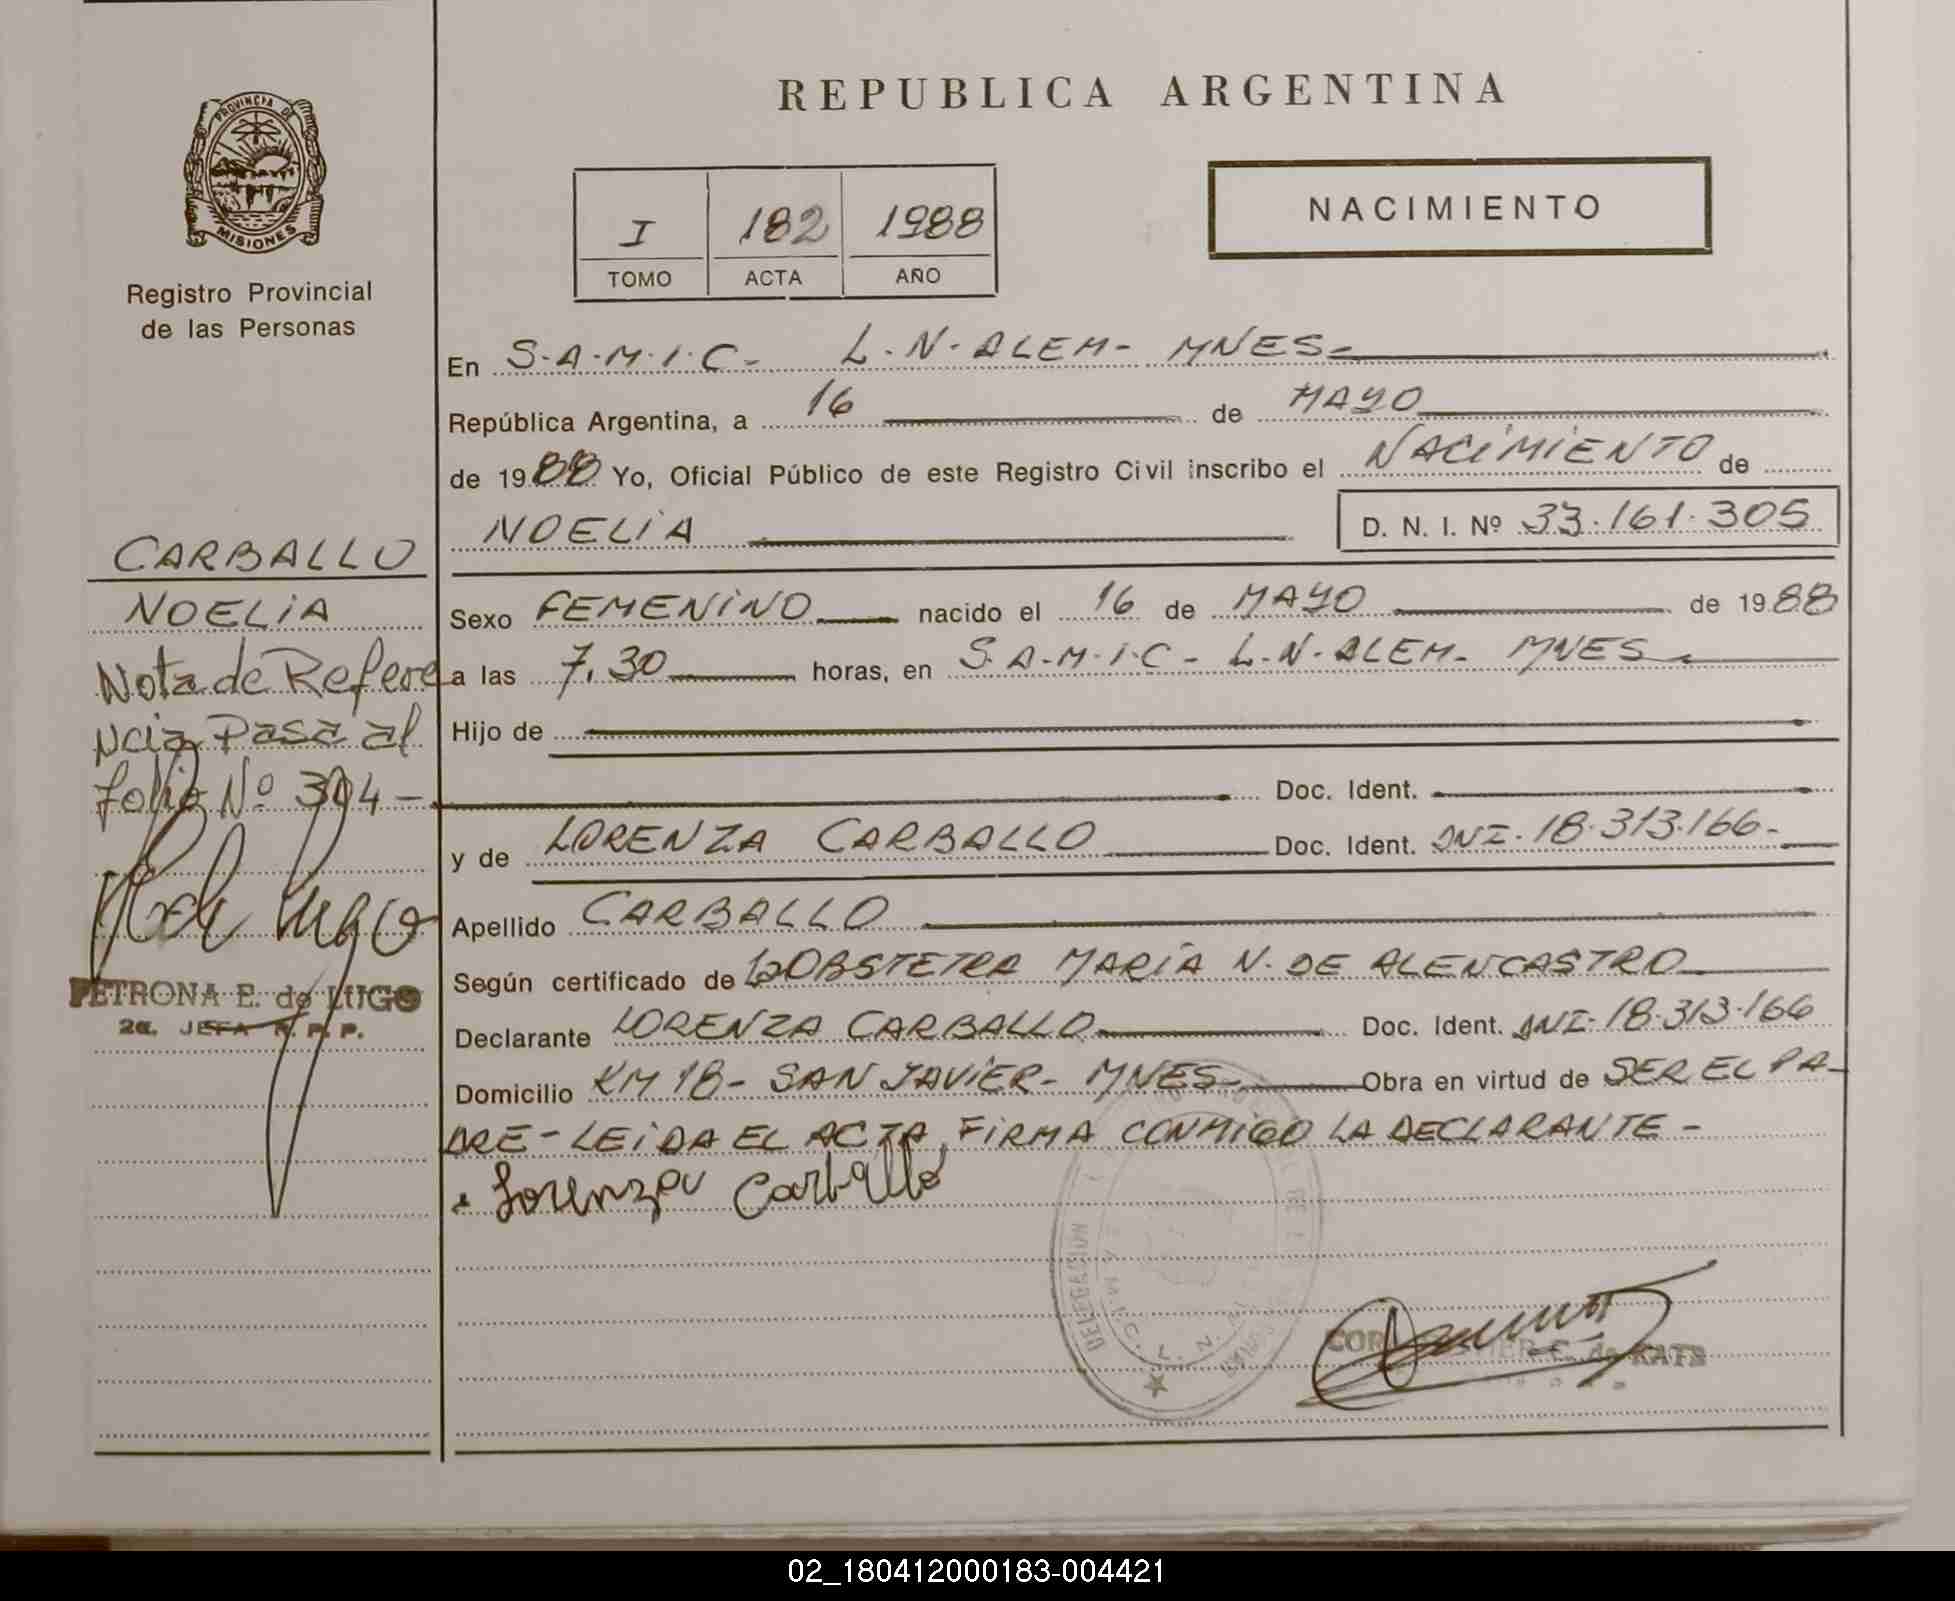 REPUBLICA ARGENTINA
PROVINCIA DE
MISIONES
Registro Provincial
de las Personas
I 182 1988
TOMO ACTA AÑO
NACIMIENTO
En S.A.M.I.C- L.N.ALEM- MNES-
República Argentina, a 16 de MAYO
de 1988 Yo, Oficial Público de este Registro Civil inscribo el NACIMIENTO de
NOELIA D. N. I. Nº 33.161.305
CARBALLO
NOELIA
Nota de Refere
ncia Pasa al
folio Nº 304-
PETRONA E. de LUGO
2a. JEFA R. P. P.
Sexo FEMENINO nacido el 16 de MAYO de 1988
a las 7,30 horas, en S.A.M.I.C- L.N.ALEM- MNES
Hijo de
Doc. Ident.
y de LORENZA CARBALLO Doc. Ident. DNI-18.313.166-
Apellido CARBALLO
Según certificado de la OBSTETRA MARIA N. DE ALENCASTRO
Declarante LORENZA CARBALLO Doc. Ident. DNI-18.313.166
Domicilio KM 18- SAN JAVIER- MNES- Obra en virtud de SER EL PA-
DRE- LEIDA EL ACTA, FIRMA CONMIGO LA DECLARANTE-
Lorenza Carballo
DELEGACION
L. N.
de KATZ
02_180412000183-004421